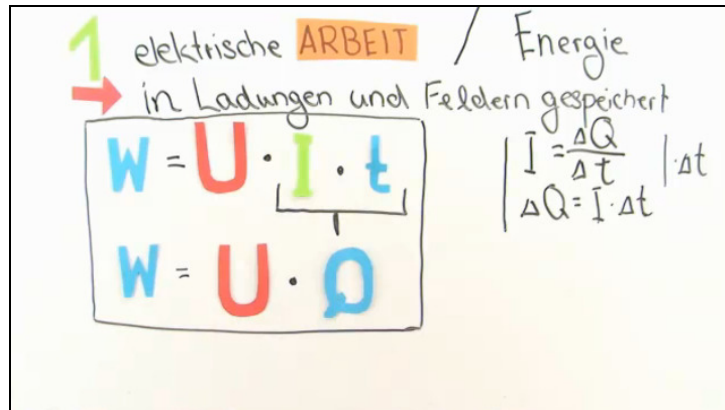 1 elektrische ARBEIT / Energie
→ in Ladungen und Feldern gespeichert
W = U · I · t
W = U · Q
| I = ΔQ/Δt | ·Δt
| ΔQ = I · Δt